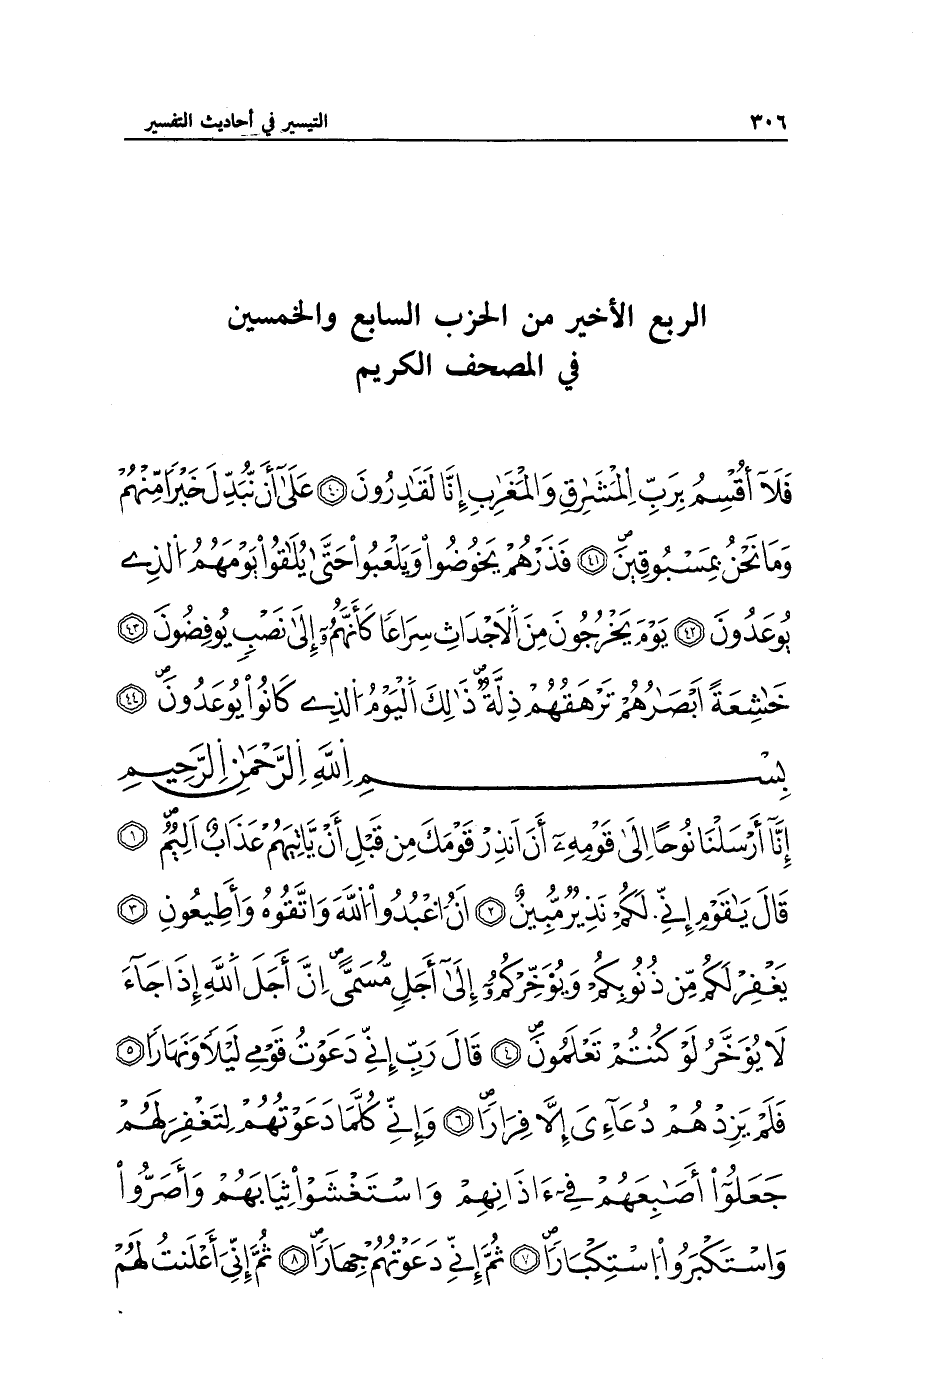 ٣٠٦ التيسير في أحاديث التفسير
الربع الأخير من الحزب السابع والخمسين
في المصحف الكريم
فَلَآ أُقْسِمُ بِرَبِّ اِ۬لْمَشَٰرِقِ وَالْمَغَٰرِبِ إِنَّا لَقَٰدِرُونَ ٤٠ عَلَىٰٓ أَن نُّبَدِّلَ خَيْراً مِّنْهُمْ
وَمَا نَحْنُ بِمَسْبُوقِينَۖ ٤١ فَذَرْهُمْ يَخُوضُواْ وَيَلْعَبُواْ حَتَّىٰ يُلَٰقُواْ يَوْمَهُمُ اُ۬لذِے
يُوعَدُونَ ٤٢ يَوْمَ يَخْرُجُونَ مِنَ اَ۬لَاجْدَاثِ سِرَاعاً كَأَنَّهُمُۥٓ إِلَىٰ نَصْبٍ يُوفِضُونَ ٤٣
خَٰشِعَةً اَبْصَٰرُهُمْ تَرْهَقُهُمْ ذِلَّةٌۖ ذَٰلِكَ اَ۬لْيَوْمُ اُ۬لذِے كَانُواْ يُوعَدُونَۖ ٤٤
بِسْمِ اِ۬للَّهِ اِ۬لرَّحْمَٰنِ اِ۬لرَّحِيمِ
إِنَّآ أَرْسَلْنَا نُوحاً اِلَىٰ قَوْمِهِۦٓ أَنَ اَنذِرْ قَوْمَكَ مِن قَبْلِ أَنْ يَّاتِيَهُمْ عَذَابٌ اَلِيمٌۖ ١
قَالَ يَٰقَوْمِ إِنِّے لَكُمْ نَذِيرٌ مُّبِينٌ ٢ اَنُ اُ۟عْبُدُواْ اُ۬للَّهَ وَاتَّقُوهُ وَأَطِيعُونِ ٣
يَغْفِرْ لَكُم مِّن ذُنُوبِكُمْ وَيُوَخِّرْكُمُۥٓ إِلَىٰٓ أَجَلٍ مُّسَمًّىۖ اِنَّ أَجَلَ اَ۬للَّهِ إِذَا جَآءَ
لَا يُوَخَّرُ لَوْ كُنتُمْ تَعْلَمُونَۖ ٤ قَالَ رَبِّ إِنِّے دَعَوْتُ قَوْمِے لَيْلاً وَنَهَاراً ٥
فَلَمْ يَزِدْهُمْ دُعَآءِىَ إِلَّا فِرَاراًۖ ٦ وَإِنِّے كُلَّمَا دَعَوْتُهُمْ لِتَغْفِرَ لَهُمْ
جَعَلُوٓاْ أَصَٰبِعَهُمْ فِےٓ ءَاذَانِهِمْ وَاسْتَغْشَوْاْ ثِيَابَهُمْ وَأَصَرُّواْ
وَاسْتَكْبَرُواْ اُ۪سْتِكْبَاراًۖ ٧ ثُمَّ إِنِّے دَعَوْتُهُمْ جِهَاراًۖ ٨ ثُمَّ إِنِّيَ أَعْلَنتُ لَهُمْ